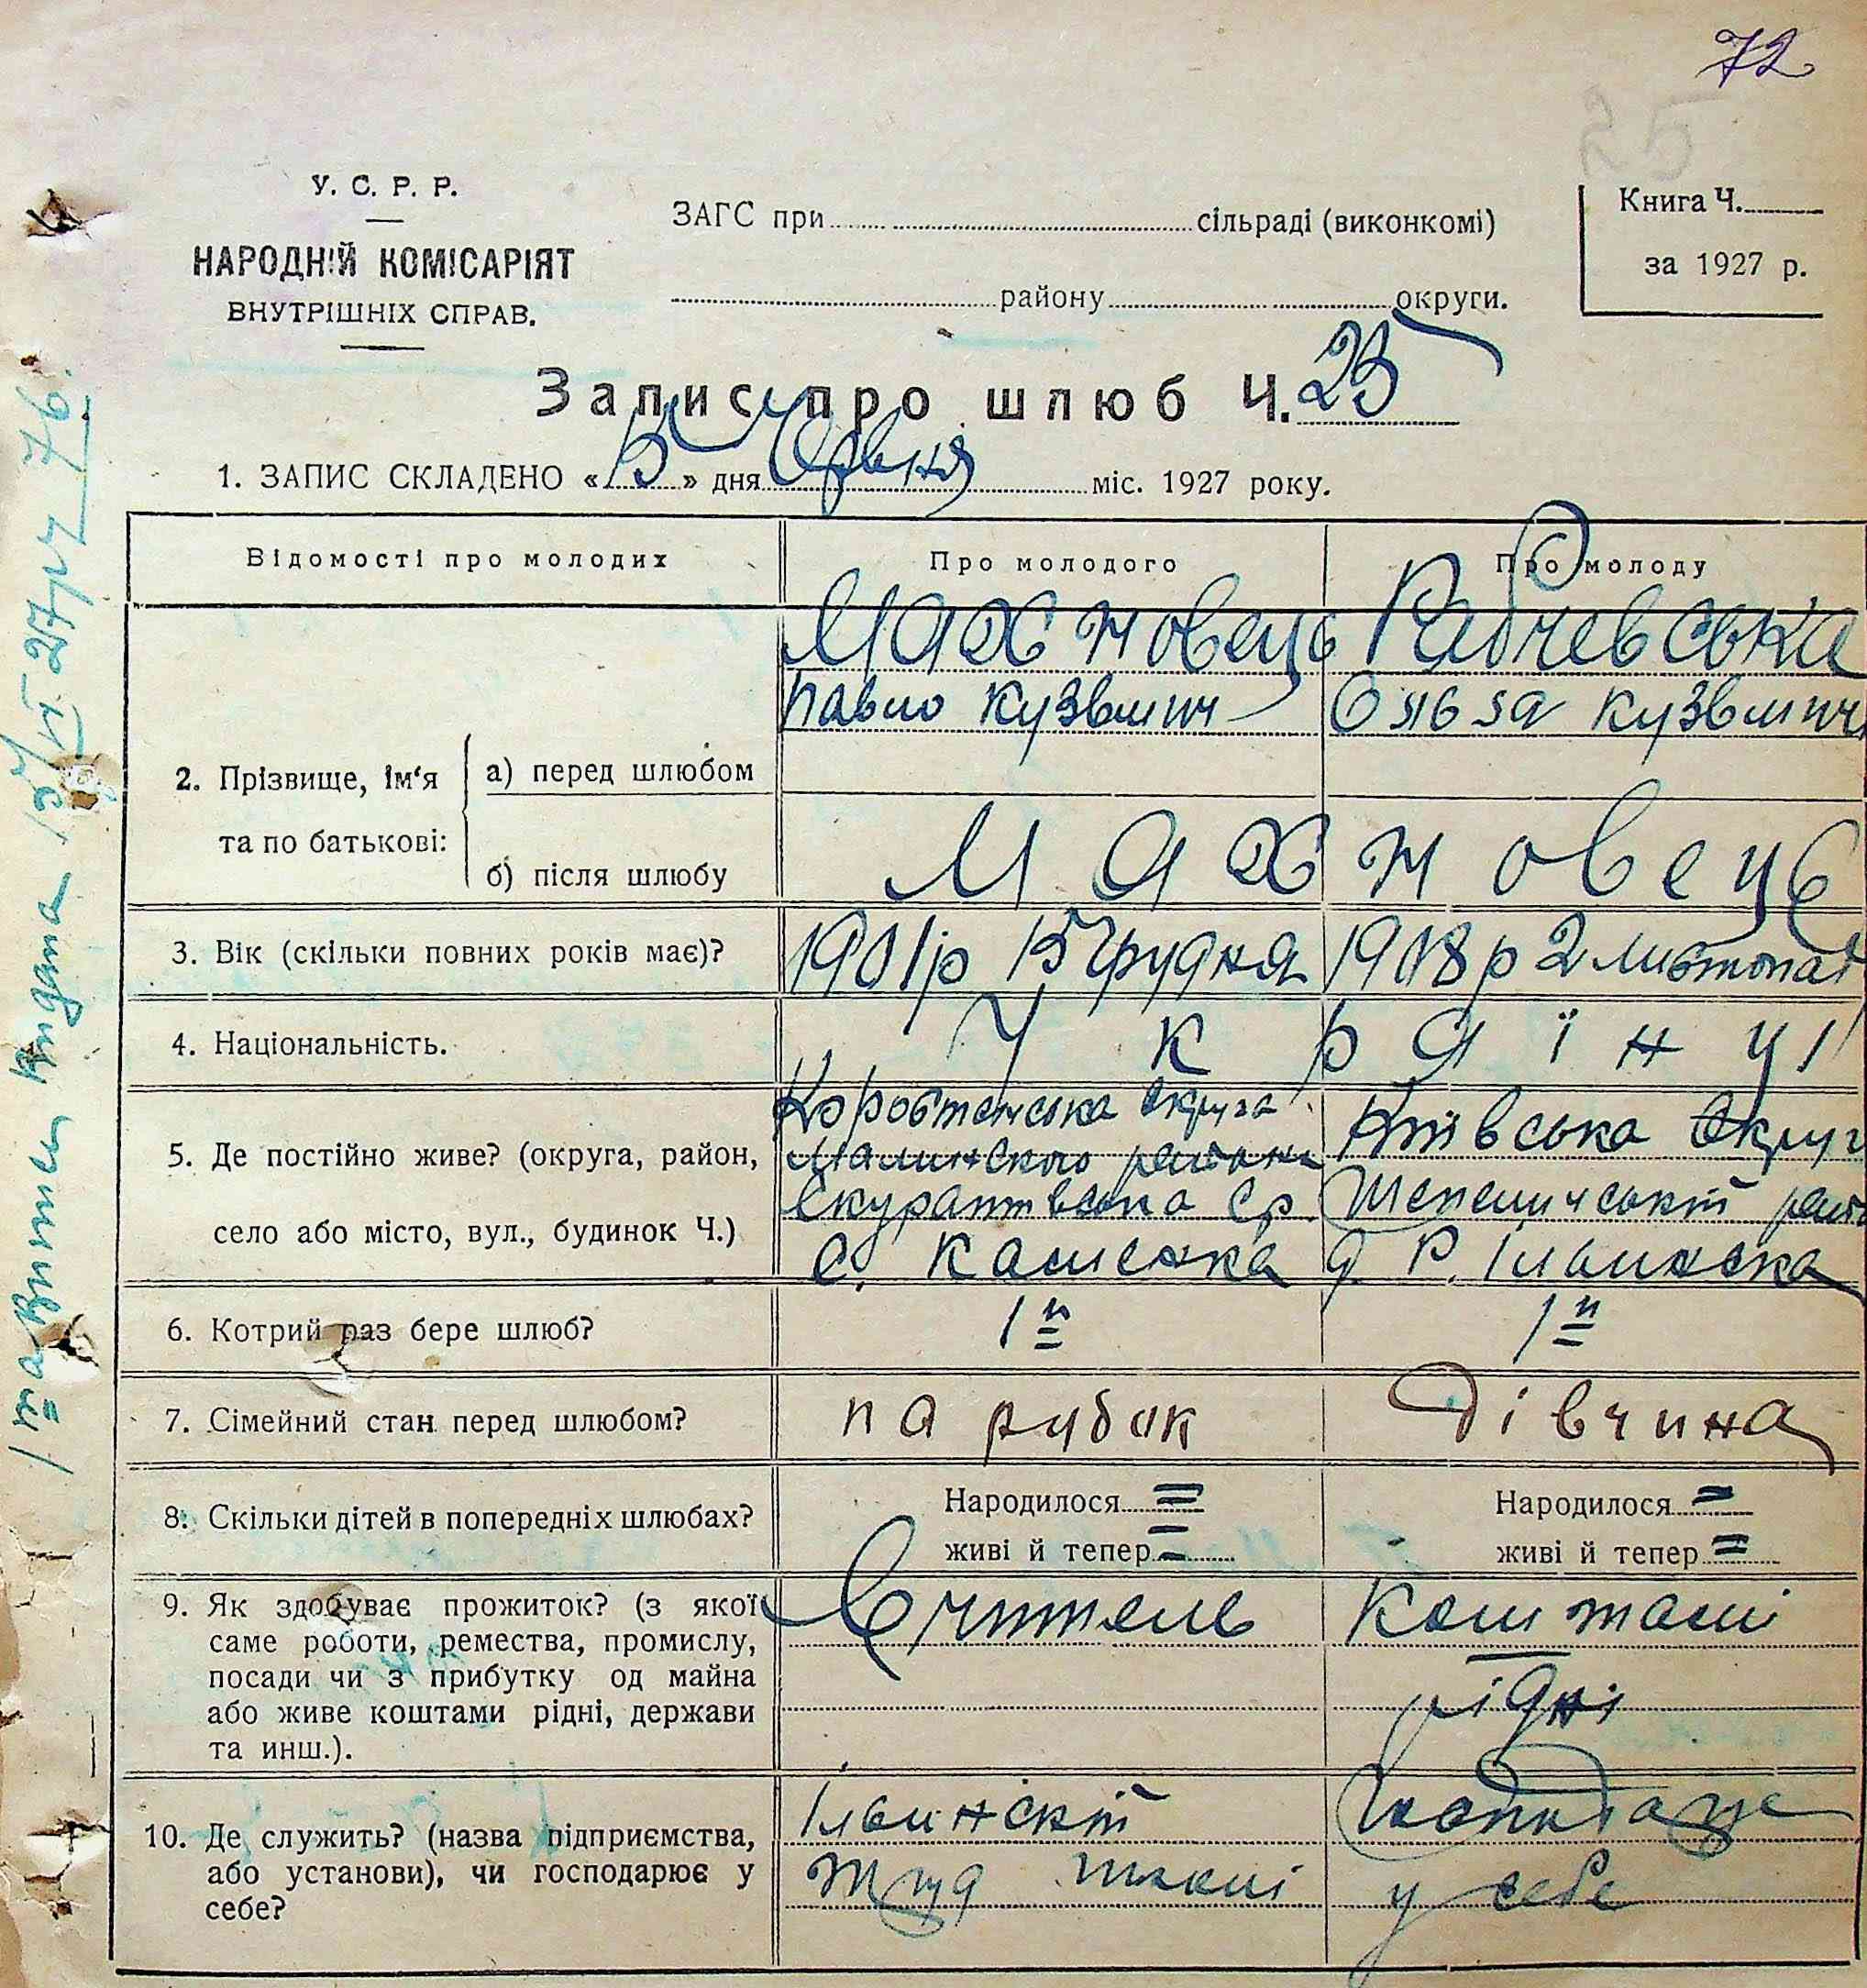 72
У. С. Р. Р.
НАРОДНІЙ КОМІСАРІЯТ
ВНУТРІШНІХ СПРАВ.
ЗАГС при сільраді (виконкомі)
району округи.
Книга Ч.
за 1927 р.
Запис про шлюб Ч. 23
1. ЗАПИС СКЛАДЕНО « 15 » дня Червня міс. 1927 року.
Відомості про молодих Про молодого Про молоду
2. Прізвище, ім‘я та по батькові:
а) перед шлюбом
Махновець
Павло Кузьмич
Рабчевська
Ольга Кузьмич
б) після шлюбу
Махновець
3. Вік (скільки повних років має)? 1901 р 15 Грудня 1908 р 2 листопад
4. Національність. Українці
5. Де постійно живе? (округа, район,
село або місто, вул., будинок Ч.)
Коростенська округа
Малинского района
Скуратівська Ср
с. Каменка
Київська Округ
Шепеличський
Р. Ільинська
6. Котрий раз бере шлюб? 1й 1й
7. Сімейний стан перед шлюбом? парубок Дівчина
8. Скільки дітей в попередніх шлюбах?
Народилося = Народилося =
живі й тепер = живі й тепер =
9. Як здобуває прожиток? (з якої
саме роботи, ремества, промислу,
посади чи з прибутку од майна
або живе коштами рідні, держави
та инш.).
Вчитель
Коштами
рідні
10. Де служить? (назва підприємства,
або установи), чи господарює у
себе?
Ільинскій
Труд школі
у себе